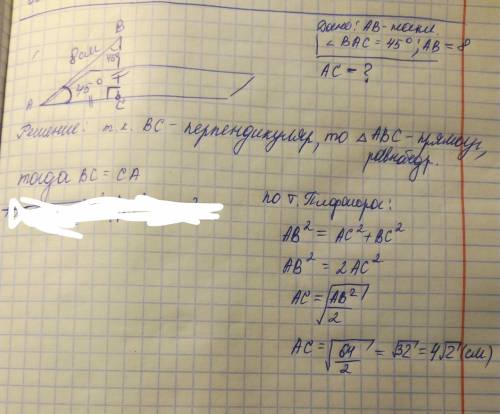 B
8см
45°
A
45°
C
Дано: AB-накл.
∠BAC = 45°; AB = 8
AC - ?
Решение: т.к. BC - перпендикуляр, то △ABC - прямоуг,
равнобедр.
тогда BC = CA
по т. Пифагора:
AB² = AC² + BC²
AB² = 2AC²
AC = √(AB²/2)
AC = √(64/2) = √32 = 4√2 (см)